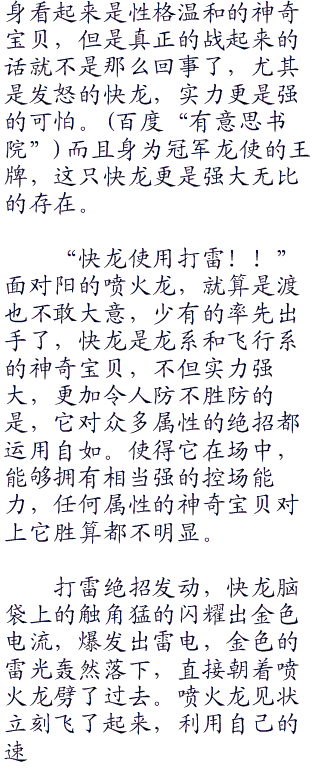 身看起来是性格温和的神奇
宝贝，但是真正的战起来的
话就不是那么回事了，尤其
是发怒的快龙，实力更是强
的可怕。(百度“有意思书
院”)而且身为冠军龙使的王
牌，这只快龙更是强大无比
的存在。
“快龙使用打雷！！”
面对阳的喷火龙，就算是渡
也不敢大意，少有的率先出
手了，快龙是龙系和飞行系
的神奇宝贝，不但实力强
大，更加令人防不胜防的
是，它对众多属性的绝招都
运用自如。使得它在场中，
能够拥有相当强的控场能
力，任何属性的神奇宝贝对
上它胜算都不明显。
打雷绝招发动，快龙脑
袋上的触角猛的闪耀出金色
电流，爆发出雷电，金色的
雷光轰然落下，直接朝着喷
火龙劈了过去。喷火龙见状
立刻飞了起来，利用自己的
速